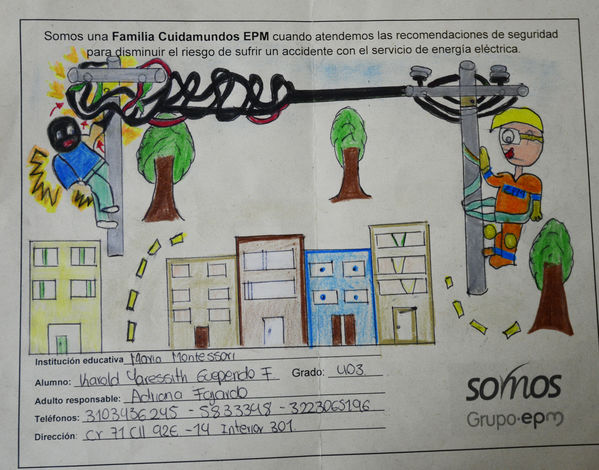 Somos una Familia Cuidamundos EPM cuando atendemos las recomendaciones de seguridad
para disminuir el riesgo de sufrir un accidente con el servicio de energía eléctrica.
EPM
Institución educativa Maria Montessori
Alumno: Karold Yaressith Guependo F Grado: 403
Adulto responsable: Adriana Fajardo
Teléfonos: 3103436245 - 5833348 - 3223065196
Dirección: Cr 71 Cll 92E -14 Interior 301
somos
Grupo·epm